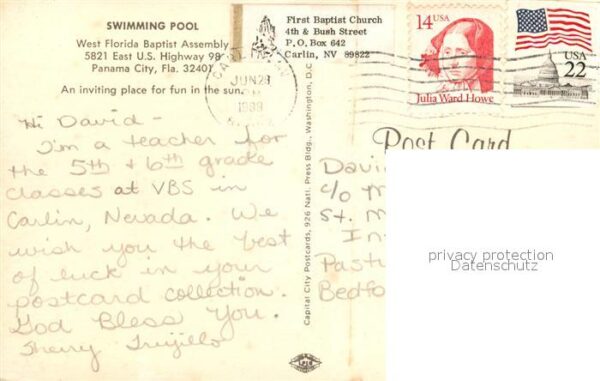 SWIMMING POOL
West Florida Baptist Assembly
5821 East U.S. Highway 98
Panama City, Fla. 32407
An inviting place for fun in the sun.
First Baptist Church
4th & Bush Street
P.O. Box 642
Carlin, NV 89822
JUN 28
1989
14 USA
Julia Ward Howe
USA
22
Hi David-
I'm a teacher for
the 5th & 6th grade
classes at VBS in
Carlin, Nevada. We
wish you the best
of luck in your
postcard collection.
God Bless You.
Sherry Trujillo
Capital City Postcards, 926 Natl. Press Bldg., Washington, D.C.
Post Card
David
c/o M
St. M
In
Past
Bedfo
privacy protection
Datenschutz